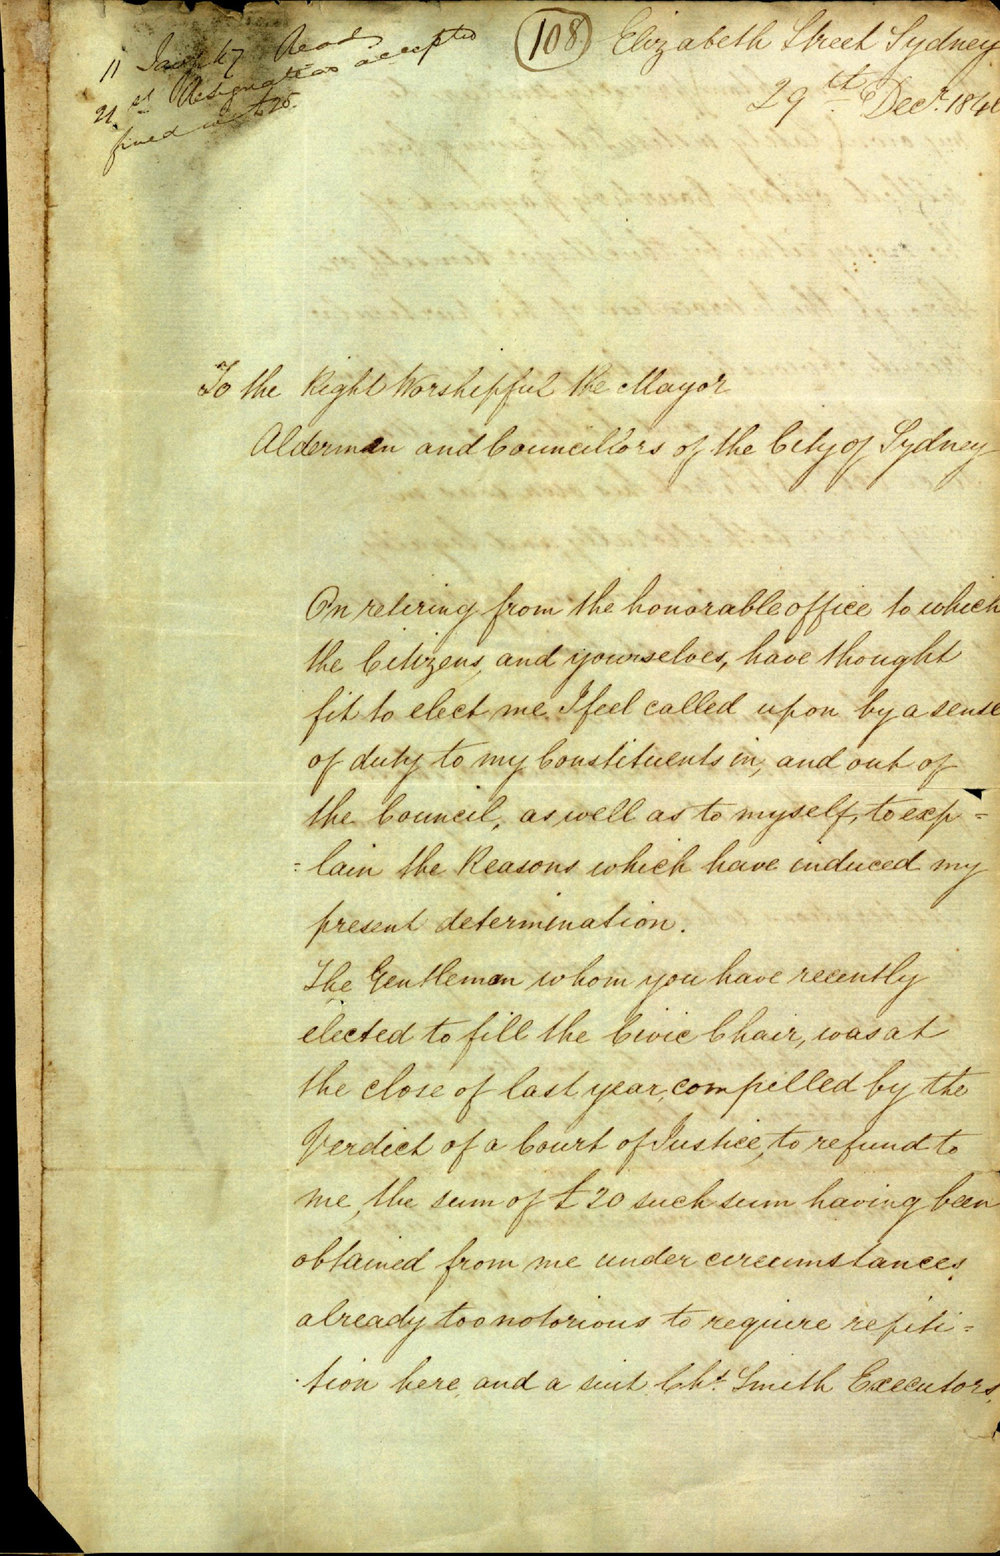 11 Jany 47 Read
21st Resignation accepted
fined in £25.
(108)
Elizabeth Street Sydney
29th Decr. 184
To the Right Worshipful the Mayor
Aldermen and Councillors of the City of Sydney
On retiring from the honorable office to which
the Citizens, and yourselves, have thought
fit to elect me I feel called upon by a sense
of duty to my Constituents in, and out of
the Council, as well as to myself, to exp=
=lain the Reasons which have induced my
present determination.
The Gentleman whom you have recently
elected to fill the Civic Chair, was at
the close of last year, compelled by the
Verdict of a Court of Justice, to refund to
me, the sum of £20 such sum having been
obtained from me under circumstances
already too notorious to require repiti=
tion here, and a suit Chs. Smith Executors,